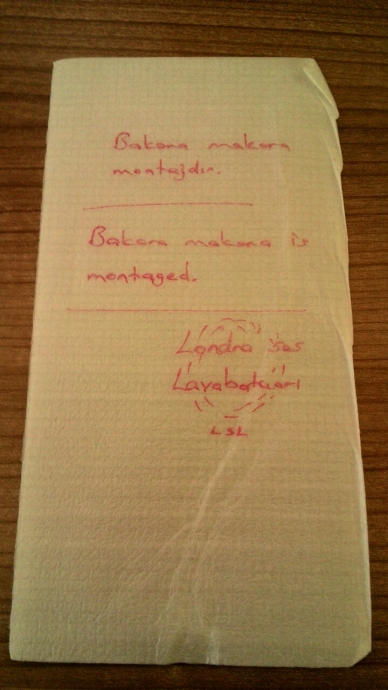 Bakara makara
montajdır.
Bakara makara is
montaged.
Londra ses
Lavabatuarı
LSL